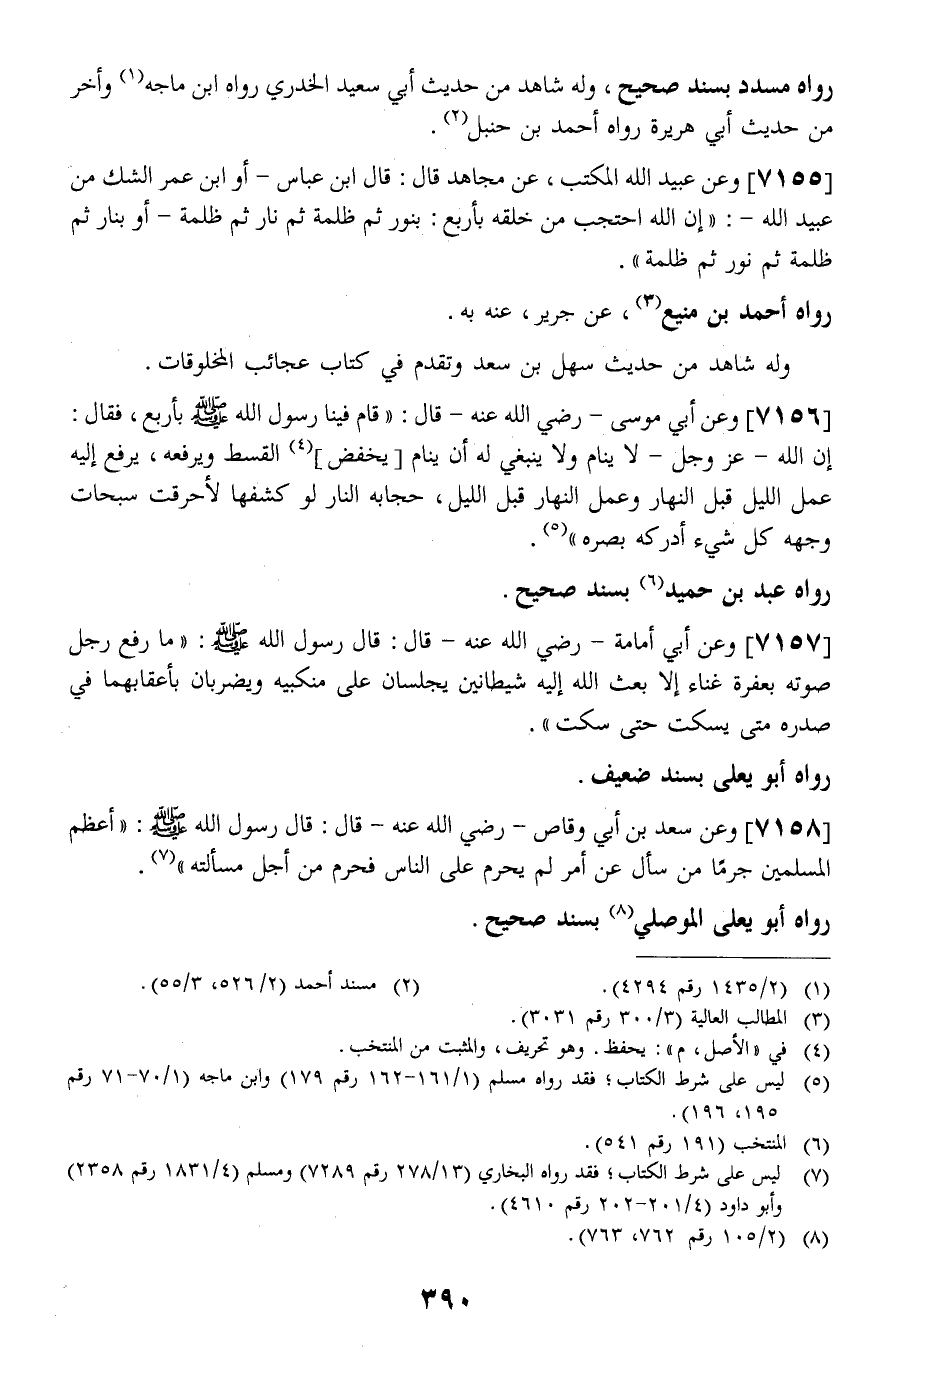 رواه مسدد بسند صحيح ، وله شاهد من حديث أبي سعيد الخدري رواه ابن ماجه(١) وأخر
من حديث أبي هريرة رواه أحمد بن حنبل(٢) .
[٧١٥٥] وعن عبيد الله المكتب ، عن مجاهد قال : قال ابن عباس – أو ابن عمر الشك من
عبيد الله – : « إن الله احتجب من خلقه بأربع : بنور ثم ظلمة ثم نار ثم ظلمة – أو بنار ثم
ظلمة ثم نور ثم ظلمة» .
رواه أحمد بن منيع(٣) ، عن جرير ، عنه به .
وله شاهد من حديث سهل بن سعد وتقدم في كتاب عجائب المخلوقات .
[٧١٥٦] وعن أبي موسى – رضي الله عنه – قال : « قام فينا رسول الله ﷺ بأربع ، فقال :
إن الله – عز وجل – لا ينام ولا ينبغي له أن ينام [يخفض](٤) القسط ويرفعه ، يرفع إليه
عمل الليل قبل النهار وعمل النهار قبل الليل ، حجابه النار لو كشفها لأحرقت سبحات
وجهه كل شيء أدركه بصره»(٥) .
رواه عبد بن حميد(٦) بسند صحيح .
[٧١٥٧] وعن أبي أمامة – رضي الله عنه – قال : قال رسول الله ﷺ : « ما رفع رجل
صوته بعفرة غناء إلا بعث الله إليه شيطانين يجلسان على منكبيه ويضربان بأعقابهما في
صدره متى يسكت حتى سكت» .
رواه أبو يعلى بسند ضعيف .
[٧١٥٨] وعن سعد بن أبي وقاص – رضي الله عنه – قال : قال رسول الله ﷺ : « أعظم
المسلمين جرمًا من سأل عن أمر لم يحرم على الناس فحرم من أجل مسألته»(٧) .
رواه أبو يعلى الموصلي(٨) بسند صحيح .
(١) (١٤٣٥/٢ رقم ٤٢٩٤). (٢) مسند أحمد (٥٢٦/٢، ٥٥/٣).
(٣) المطالب العالية (٣٠٠/٣ رقم ٣٠٣١).
(٤) في «الأصل، م»: يحفظ. وهو تحريف، والمثبت من المنتخب.
(٥) ليس على شرط الكتاب؛ فقد رواه مسلم (١٦١/١-١٦٢ رقم ١٧٩) وابن ماجه (٧٠/١-٧١ رقم
١٩٥، ١٩٦).
(٦) المنتخب (١٩١ رقم ٥٤١).
(٧) ليس على شرط الكتاب؛ فقد رواه البخاري (٢٧٨/١٣ رقم ٧٢٨٩) ومسلم (١٨٣١/٤ رقم ٢٣٥٨)
وأبو داود (٢٠١/٤-٢٠٢ رقم ٤٦١٠).
(٨) (١٠٥/٢ رقم ٧٦٢، ٧٦٣).
٣٩٠